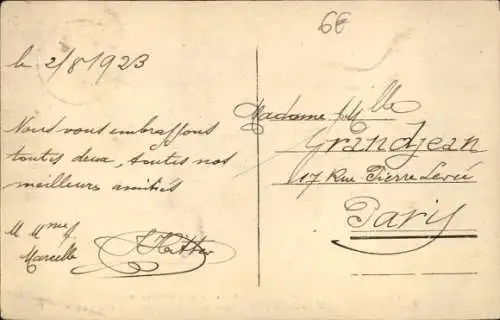 6€
le 2/8/1923
Nous vous embrassons
toutes deux, toutes nos
meilleurs amitiés
M Mme
Marcelle
Madame Mlle
Grandjean
17 Rue Pierre Levée
Paris